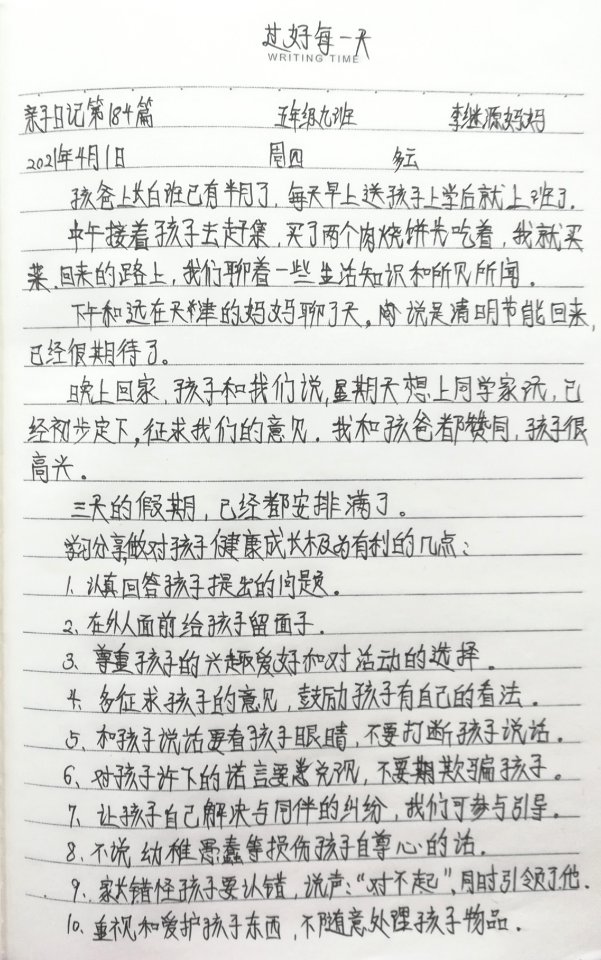 过好每一天
WRITING TIME
亲子日记第184篇 五年级九班 李继源妈妈
2021年4月1日 周四 多云
孩爸上长白班已有半月了，每天早上送孩子上学后就上班了。
中午接着孩子去赶集，买了两个肉烧饼先吃着，我就买
菜。回来的路上，我们聊着一些生活知识和所见所闻。
下午和远在天津的妈妈聊了天。说是清明节能回来，
已经很期待了。
晚上回家，孩子和我们说，星期天想上同学家玩，已
经初步定下，征求我们的意见。我和孩爸都赞同，孩子很
高兴。
三天的假期，已经都安排满了。
学习分享，做对孩子健康成长极为有利的几点：
1、认真回答孩子提出的问题。
2、在外人面前给孩子留面子。
3、尊重孩子的兴趣爱好和对活动的选择。
4、多征求孩子的意见，鼓励孩子有自己的看法。
5、和孩子说话要看孩子眼睛，不要打断孩子说话。
6、对孩子许下的诺言要兑现，不要期欺骗孩子。
7、让孩子自己解决与同伴的纠纷，我们可参与引导。
8、不说幼稚愚蠢等损伤孩子自尊心的话。
9、家长错怪孩子要认错，说声："对不起"，同时引领了他.
10、重视和爱护孩子东西，不随意处理孩子物品。